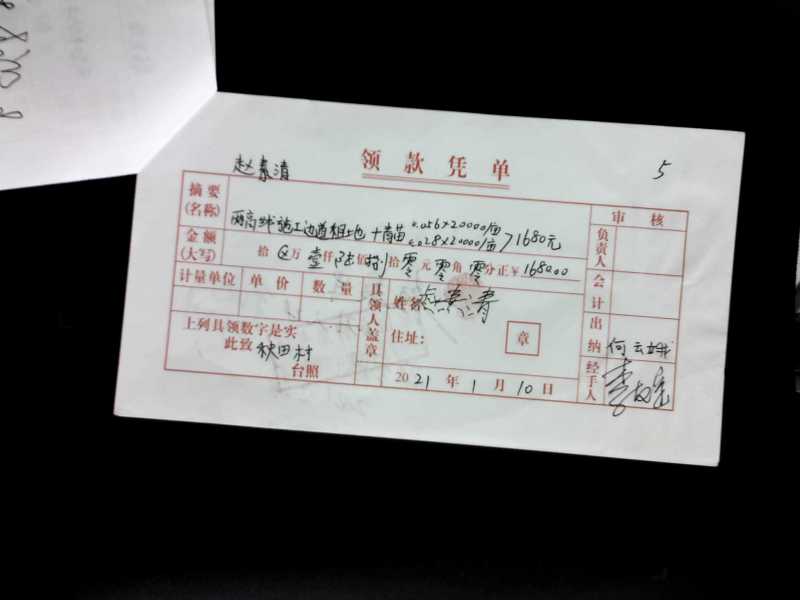 领款凭单
5
赵素清
摘要
(名称)
两高线施工边道租地+青苗 0.056×20000/亩
0.028×20000/亩 >1680元
审核
负责人
金额
(大写)
拾⊗万壹仟陆佰捌拾零元零角零分正¥1680.00
会计
计量单位 单价 数量
具领人盖章
姓名 赵素清
住址:
章
上列具领数字是实
此致 秋田村
台照
出纳
何云娥
经手人
2021年1月10日